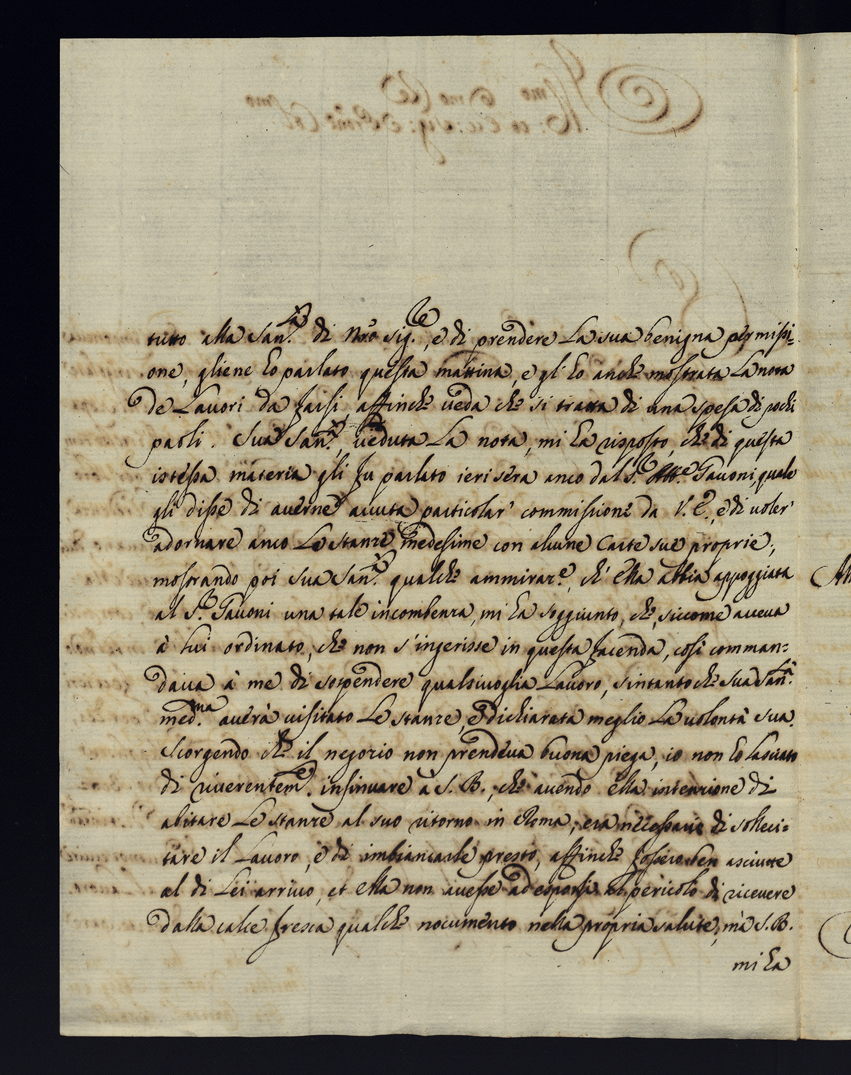 tutto alla San.tà di Nrò Sig.re, e di prendere La sua benigna permissi-
one, gliene ho parlato questa mattina, e gl'ho anche mostrata La nota
de Lavori da farsi, affinche veda che si tratta di una spesa di pochi
paoli. Sua San.tà veduta La nota, mi ha risposto, che di questa
istessa materia gli fu parlato ieri sera anco dal S.r Pavoni, quale
gli disse di averne avuta particolar' commissione da V. E., e di voler'
adornare anco Le stanze medesime con alcune Carte sue proprie;
mostrando poi Sua San.tà qualche ammiraz.e, ch'ella abbia appoggiata
al S.r Pavoni una tale incombenza, mi ha soggiunto, che, siccome aveva
à Lui ordinato, che non s'ingerisse in questa facenda, così comman=
dava à me di sospendere qualsivoglia Lavoro, sintantoche Sua San.tà
med.ma averà visitato Le stanze, e dichiarata meglio La volontà sua.
Scorgendo che il negozio non prendeva buona piega, io non ho lasciato
di riverentem.te insinuare à S. B., che avendo ella intenzione di
abitare Le stanze al suo ritorno in Roma, era necessario di solleci=
tare il Lavoro, e di imbiancarle presto, affinche fossero ben asciutte
al di Lei arrivo, et ella non avesse ad esporsi al pericolo di ricevere
dalla calce fresca qualche nocumento nella propria salute, mà S. B.
mi ha